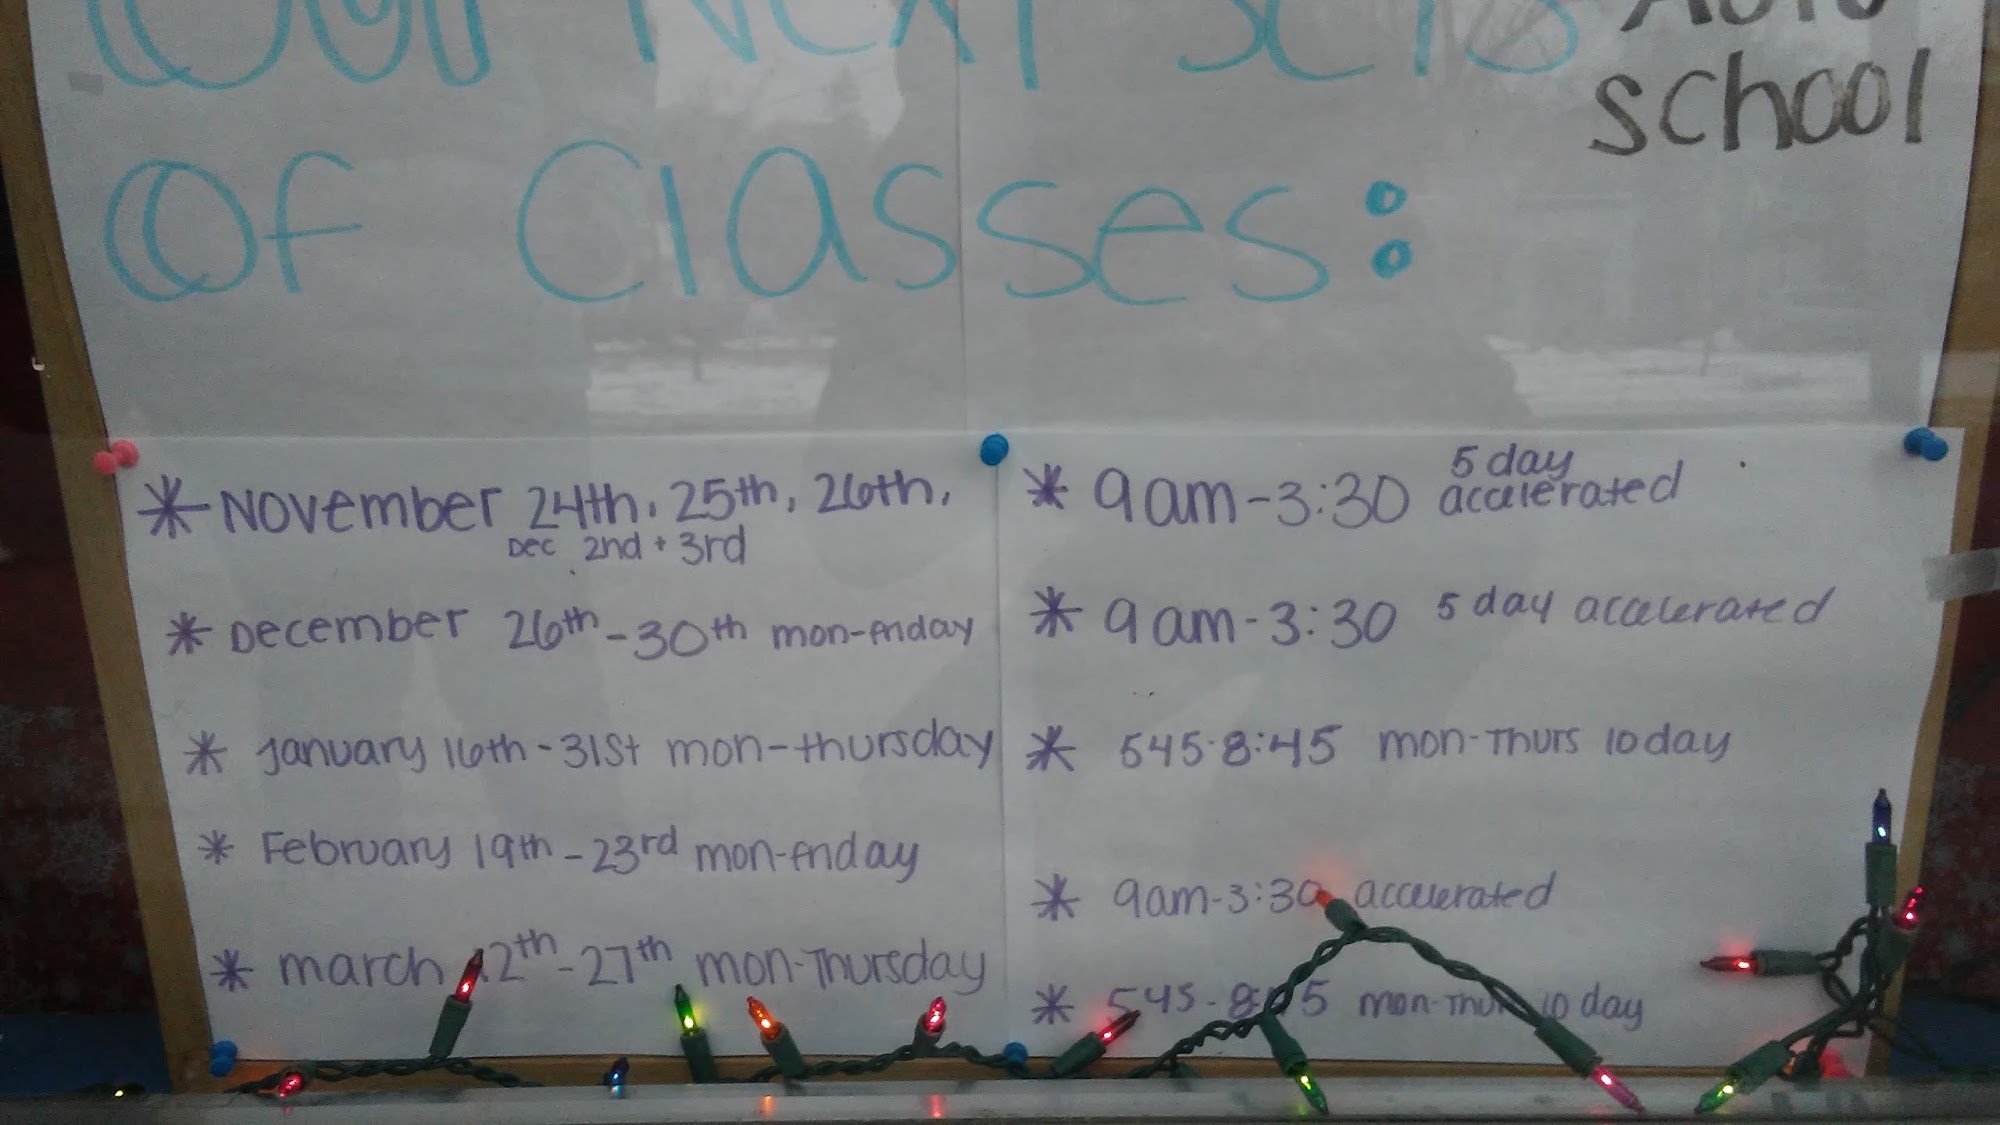 Our Next Sets
Auto
school
Of Classes:
* November 24th, 25th, 26th,
Dec 2nd + 3rd
* December 26th - 30th mon-friday
* January 16th - 31st mon-thursday
* February 19th - 23rd mon-friday
* march 12th - 27th mon-Thursday
* 9am-3:30 5 day accelerated
* 9am-3:30 5 day accelerated
* 545-8:45 mon-Thurs 10day
* 9am-3:30 accelerated
* 545-8:45 mon-Thurs 10 day